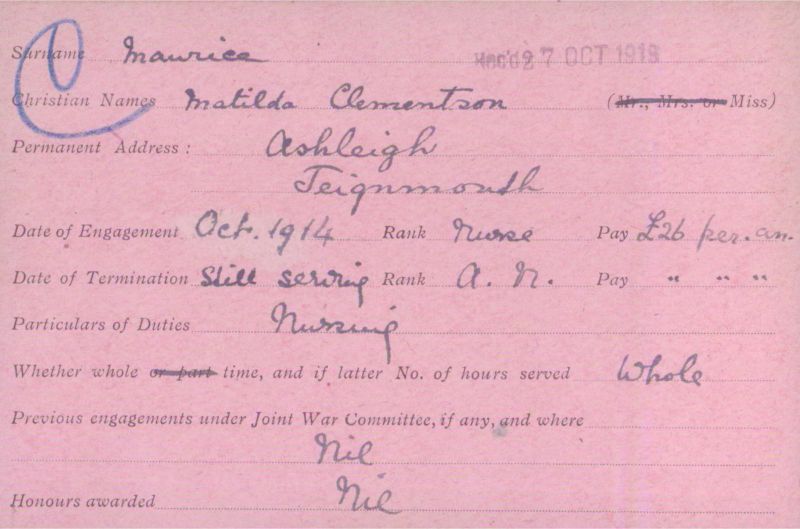 Surname Maurice Rec'd 27 OCT 1919
Christian Names Matilda Clementson (Mr., Mrs. or Miss)
Permanent Address: Ashleigh
Teignmouth
Date of Engagement Oct. 1914 Rank Nurse Pay £26 per. an.
Date of Termination Still serving Rank A. N. Pay " " "
Particulars of Duties Nursing
Whether whole or part time, and if latter No. of hours served Whole
Previous engagements under Joint War Committee, if any, and where
Nil
Honours awarded Nil